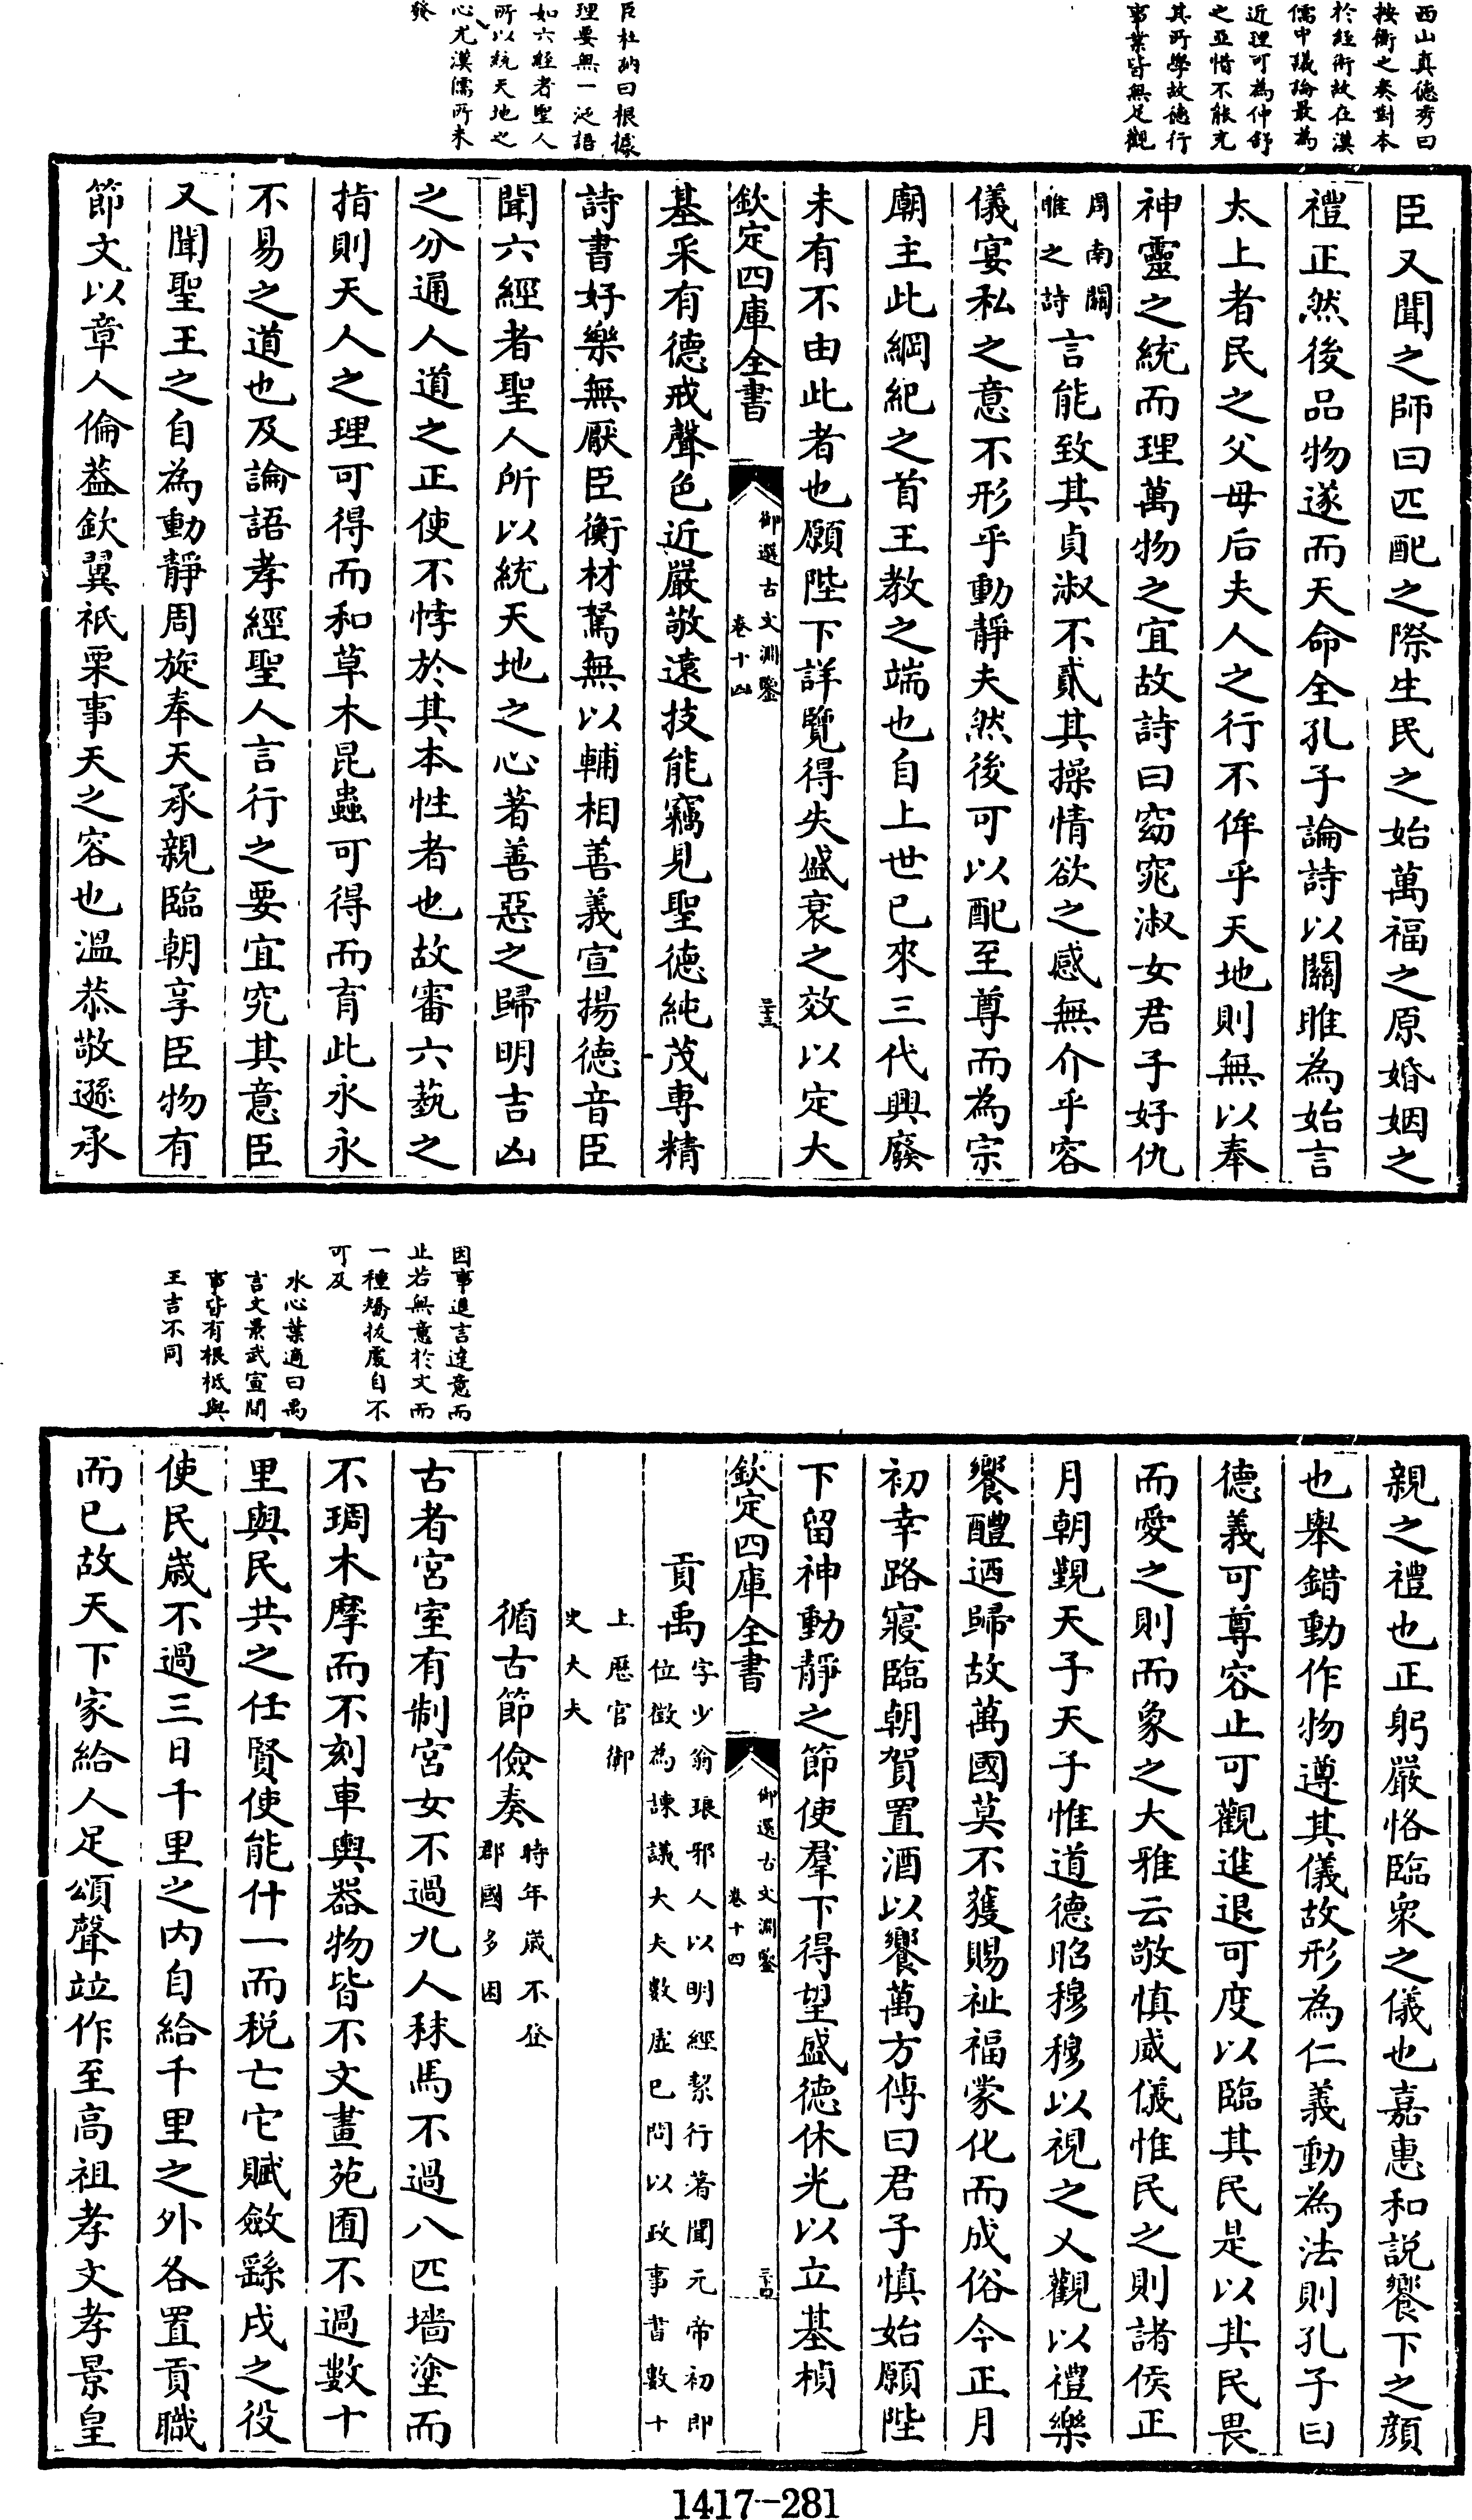 西山真德秀曰
按衡之奏對本
於經術故在漢
儒中議論最為
近理可為仲舒
之亞惜不能充
其所學故德行
事業皆無足觀
臣杜訥曰根據
理要無一泛語
如六經者聖人
所以統天地之
心尤漢儒所未
發
臣又聞之師曰匹配之際生民之始萬福之原婚姻之
禮正然後品物遂而天命全孔子論詩以關雎為始言
太上者民之父母后夫人之行不侔乎天地則無以奉
神靈之統而理萬物之宜故詩曰窈窕淑女君子好仇
周南關
雎之詩
言能致其貞淑不貳其操情欲之感無介乎容
儀宴私之意不形乎動靜夫然後可以配至尊而為宗
廟主此綱紀之首王教之端也自上世已來三代興廢
未有不由此者也願陛下詳覽得失盛衰之效以定大
欽定四庫全書
御選古文淵鑒
卷十四
三十三
基采有德戒聲色近嚴敬遠技能竊見聖德純茂專精
詩書好樂無厭臣衡材駑無以輔相善義宣揚德音臣
聞六經者聖人所以統天地之心著善惡之歸明吉凶
之分通人道之正使不悖於其本性者也故審六藝之
指則天人之理可得而和草木昆蟲可得而育此永永
不易之道也及論語孝經聖人言行之要宜究其意臣
又聞聖王之自為動靜周旋奉天承親臨朝享臣物有
節文以章人倫葢欽翼祇栗事天之容也溫恭敬遜承
因事進言達意而
止若無意於文而
一種矯拔處自不
可及
水心葉適曰禹
言文景武宣間
事皆有根柢與
王吉不同
親之禮也正躬嚴恪臨衆之儀也嘉惠和說饗下之顏
也舉錯動作物遵其儀故形為仁義動為法則孔子曰
德義可尊容止可觀進退可度以臨其民是以其民畏
而愛之則而象之大雅云敬慎威儀惟民之則諸侯正
月朝覲天子天子惟道德昭穆穆以視之又觀以禮樂
饗醴迺歸故萬國莫不獲賜祉福蒙化而成俗今正月
初幸路寢臨朝賀置酒以饗萬方傳曰君子慎始願陛
下留神動靜之節使羣下得望盛德休光以立基楨
欽定四庫全書
御選古文淵鑒
卷十四
三十四
貢禹
字少翁琅邪人以明經絜行著聞元帝初即
位徵為諫議大夫數虛已問以政事書數十
上歷官御
史大夫
循古節儉奏
時年歲不登
郡國多困
古者宮室有制宮女不過九人秣馬不過八匹墻塗而
不琱木摩而不刻車輿器物皆不文畫苑囿不過數十
里與民共之任賢使能什一而税亡它賦斂繇戍之役
使民歲不過三日千里之内自給千里之外各置貢職
而已故天下家給人足頌聲竝作至高祖孝文孝景皇
1417-281